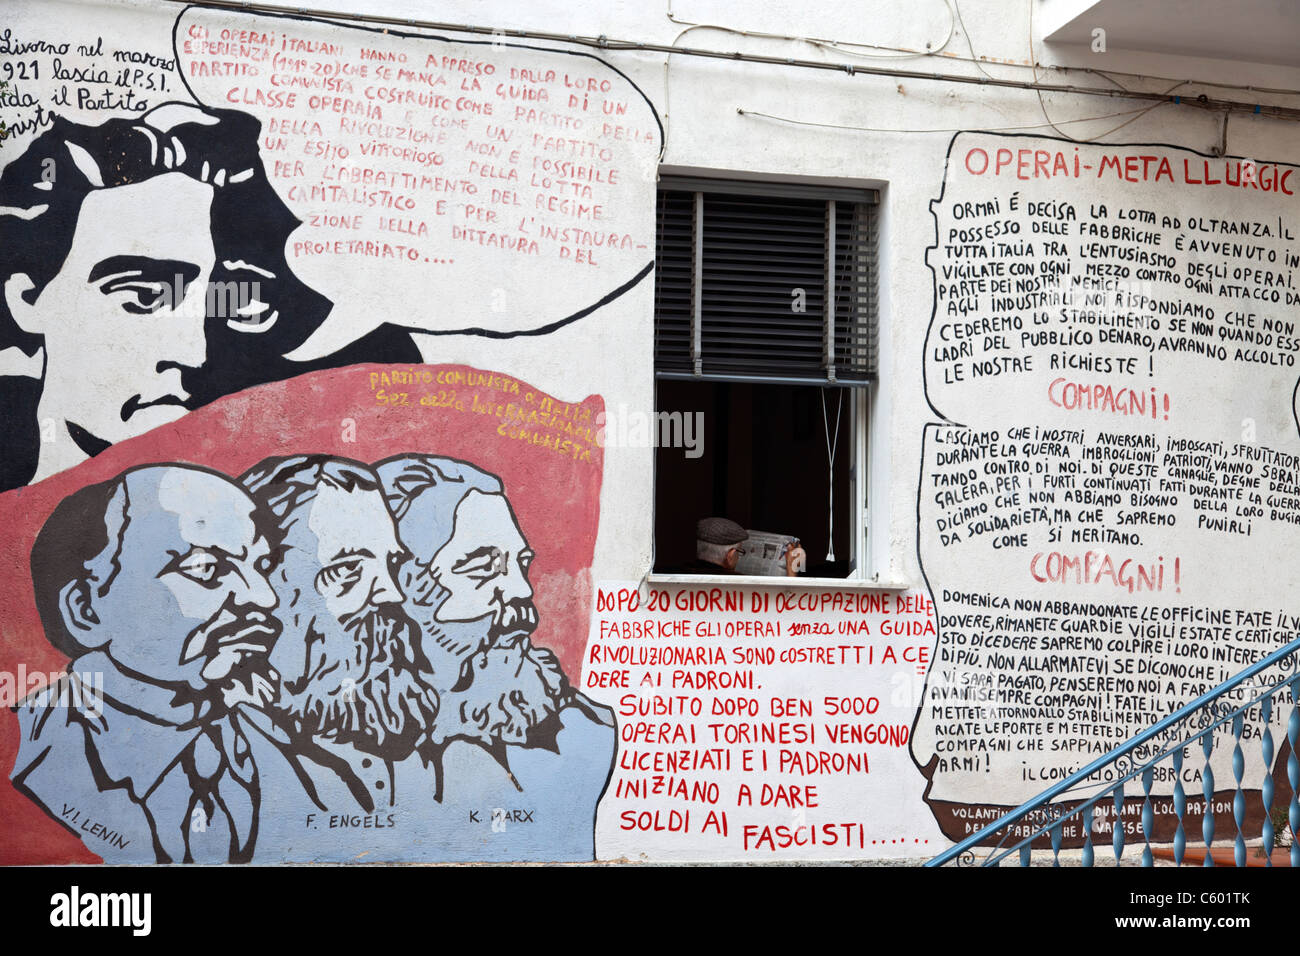 Livorno nel marzo
1921 lascia il P.S.I.
il Partito
GLI OPERAI ITALIANI HANNO APPRESO DALLA LORO
ESPERIENZA (1919-20) CHE SE MANCA LA GUIDA DI UN
PARTITO COMUNISTA COSTRUITO COME PARTITO DELLA
CLASSE OPERAIA E COME UN PARTITO
DELLA RIVOLUZIONE NON É POSSIBILE
UN ESITO VITTORIOSO DELLA LOTTA
PER L'ABBATTIMENTO DEL REGIME
CAPITALISTICO E PER L'INSTAURA-
ZIONE DELLA DITTATURA DEL
PROLETARIATO.....
PARTITO COMUNISTA D'ITALIA
Sez. della Internazionale
COMUNISTA
V.I. LENIN
F. ENGELS
K. MARX
DOPO 20 GIORNI DI OCCUPAZIONE DELLE
FABBRICHE GLI OPERAI senza UNA GUIDA
RIVOLUZIONARIA SONO COSTRETTI A CE
DERE AI PADRONI.
SUBITO DOPO BEN 5000
OPERAI TORINESI VENGONO
LICENZIATI E I PADRONI
INIZIANO A DARE
SOLDI AI FASCISTI......
OPERAI-METALLURGIC
ORMAI É DECISA LA LOTTA AD OLTRANZA. IL
POSSESO DELLE FABBRICHE È AVVENUTO IN
TUTTA ITALIA TRA L'ENTUSIASMO DEGLI OPERAI.
VIGILATE CON OGNI MEZZO CONTRO OGNI ATTACCO DA
PARTE DEI NOSTRI NEMICI.
AGLI INDUSTRIALI NOI RISPONDIAMO CHE NON
CEDEREMO LO STABILIMENTO SE NON QUANDO ESS
LADRI DEL PUBBLICO DENARO, AVRANNO ACCOLTO
LE NOSTRE RICHIESTE!
COMPAGNI!
LASCIAMO CHE I NOSTRI AVVERSARI, IMBOSCATI, SFRUTTATOR
DURANTE LA GUERRA IMBROGLIONI PATRIOTI, VANNO SBRAI
TANDO CONTRO DI NOI. DI QUESTE CANAGLIE, DEGNE DELLA
GALERA, PER I FURTI CONTINUATI FATTI DURANTE LA GUERRA
DICIAMO CHE NON ABBIAMO BISOGNO DELLA LORO BUGIA
DA SOLIDARIETÀ, MA CHE SAPREMO PUNIRLI
COME SI MERITANO.
COMPAGNI!
DOMENICA NON ABBANDONATE LE OFFICINE FATE IL V
DOVERE, RIMANETE GUARDIE VIGILI ESTATE CERTI CHE
STO DICEDERE SAPREMO COLPIRE I LORO INTERESS
DI PIÙ. NON ALLARMATEVI SE DICONO CHE IL LAVOR
VI SARÀ PAGATO, PENSEREMO NOI A FARVELO PAGAR
AVANTI SEMPRE COMPAGNI! FATE IL VOSTRO DOVERE!
METTETE ATTORNO ALLO STABILIMENTO
RICATE LE PORTE E METTETE DI GUARDIA DEI
COMPAGNI CHE SAPPIANO USARE LE
ARMI!
IL CONSIGLIO DI FABBRICA
VOLANTINO DISTRIBUITO DURANTE L'OCCUPAZION
DELLE FABBRICHE A VARESE
alamy
Image ID: C601TK
www.alamy.com